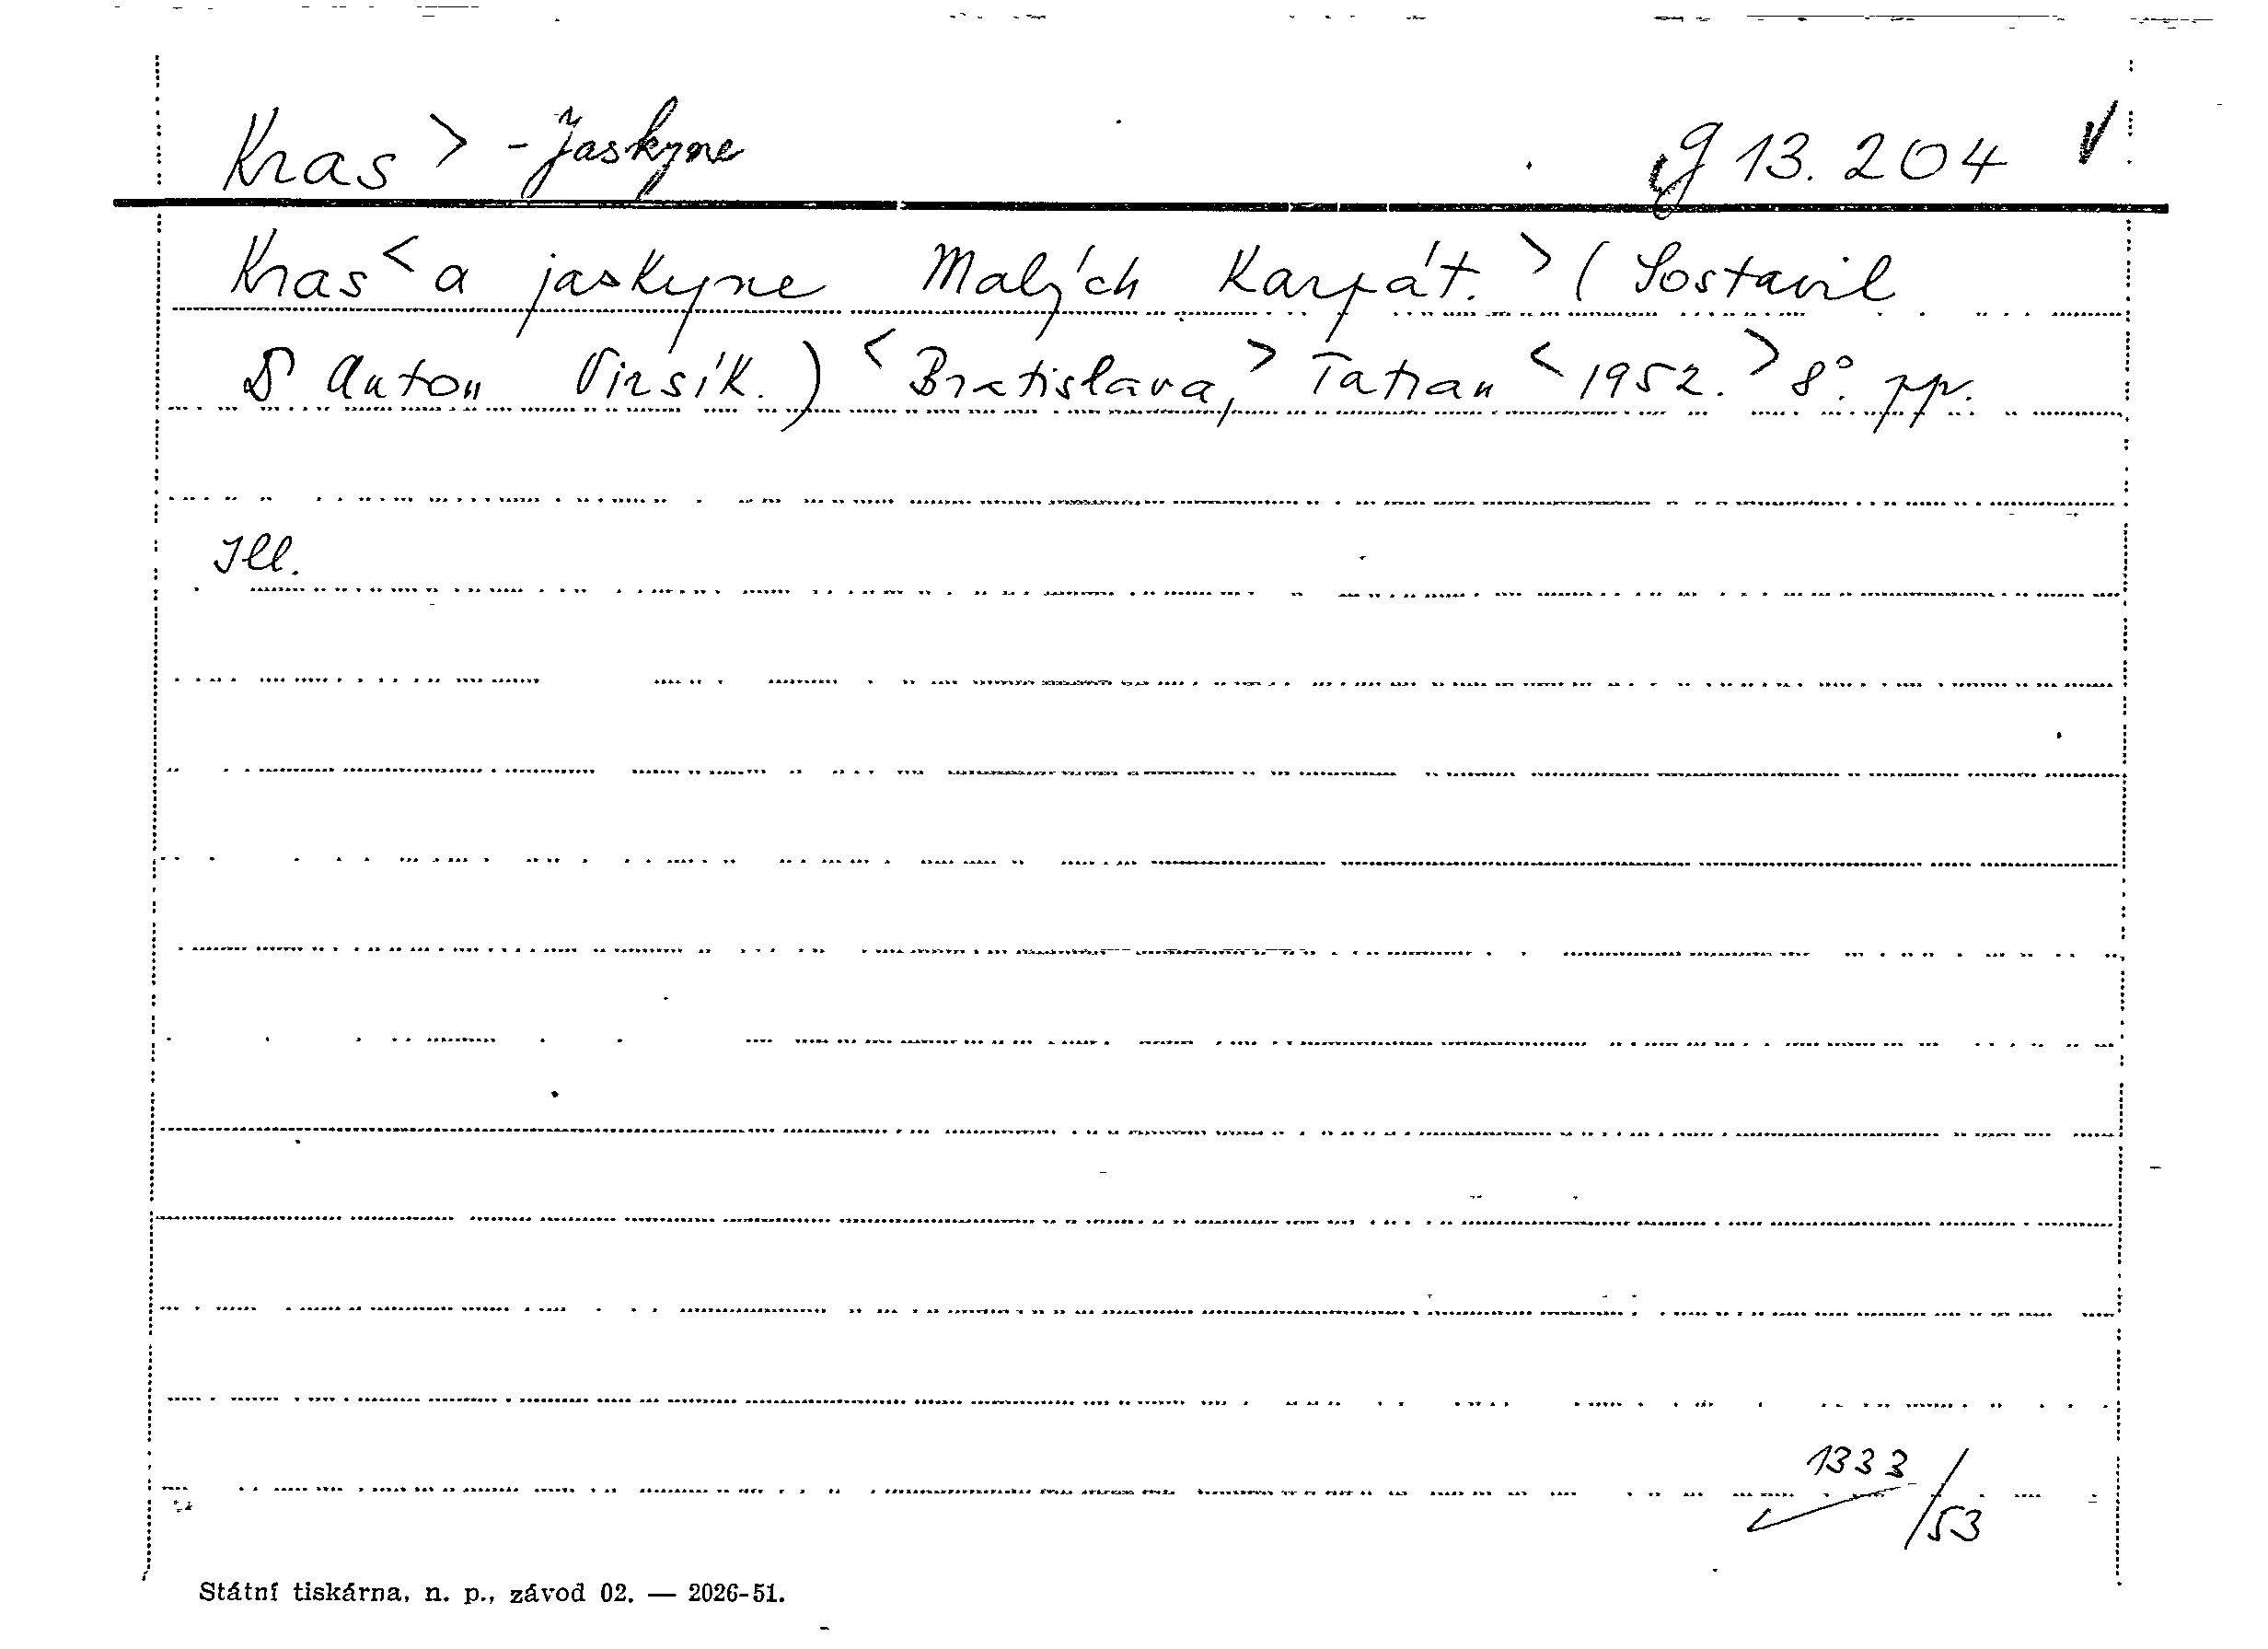 Kras > - Jaskyne g 13.204 V
Kras < a jaskyne Malých Karpát. > ( Sostavil
Dr Anton Virsík. ) < Bratislava, > Tatran < 1952. > 8°. pp.
Ill.
1333/53
Státní tiskárna, n. p., závod 02. — 2026-51.